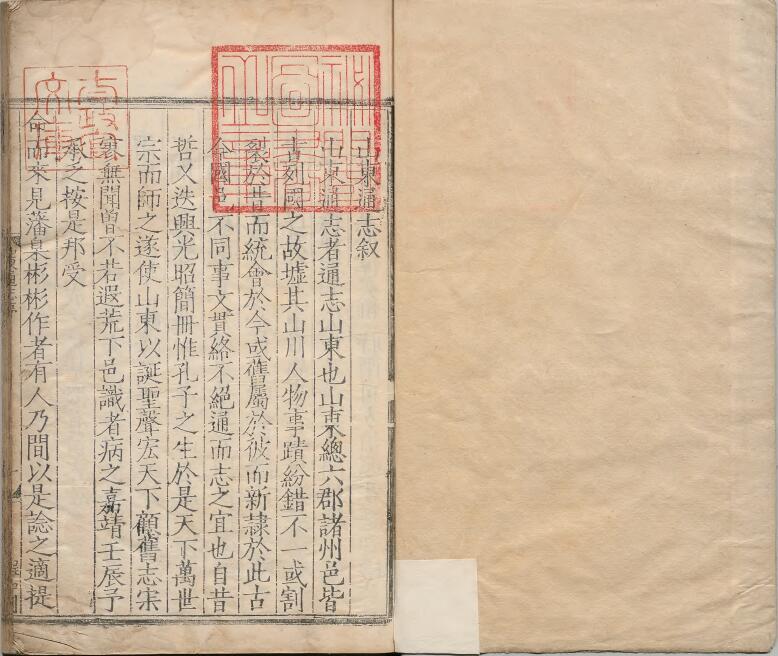 山東通志叙
山東通志者通志山東也山東總六郡諸州邑皆
書列國之故墟其山川人物事蹟紛錯不一或割
裂於昔而統會於今或舊屬於彼而新隸於此古
今國邑不同事文貫絡不絕通而志之宜也自昔
哲又迭興光昭簡冊惟孔子之生於是天下萬世
宗而師之遂使山東以誕聖聲宏天下顧舊志宋
裒無聞曾不若遐荒下邑識者病之嘉靖壬辰予
承乏按是邦受
命而來見藩臬彬彬作者有人乃間以是諗之適提